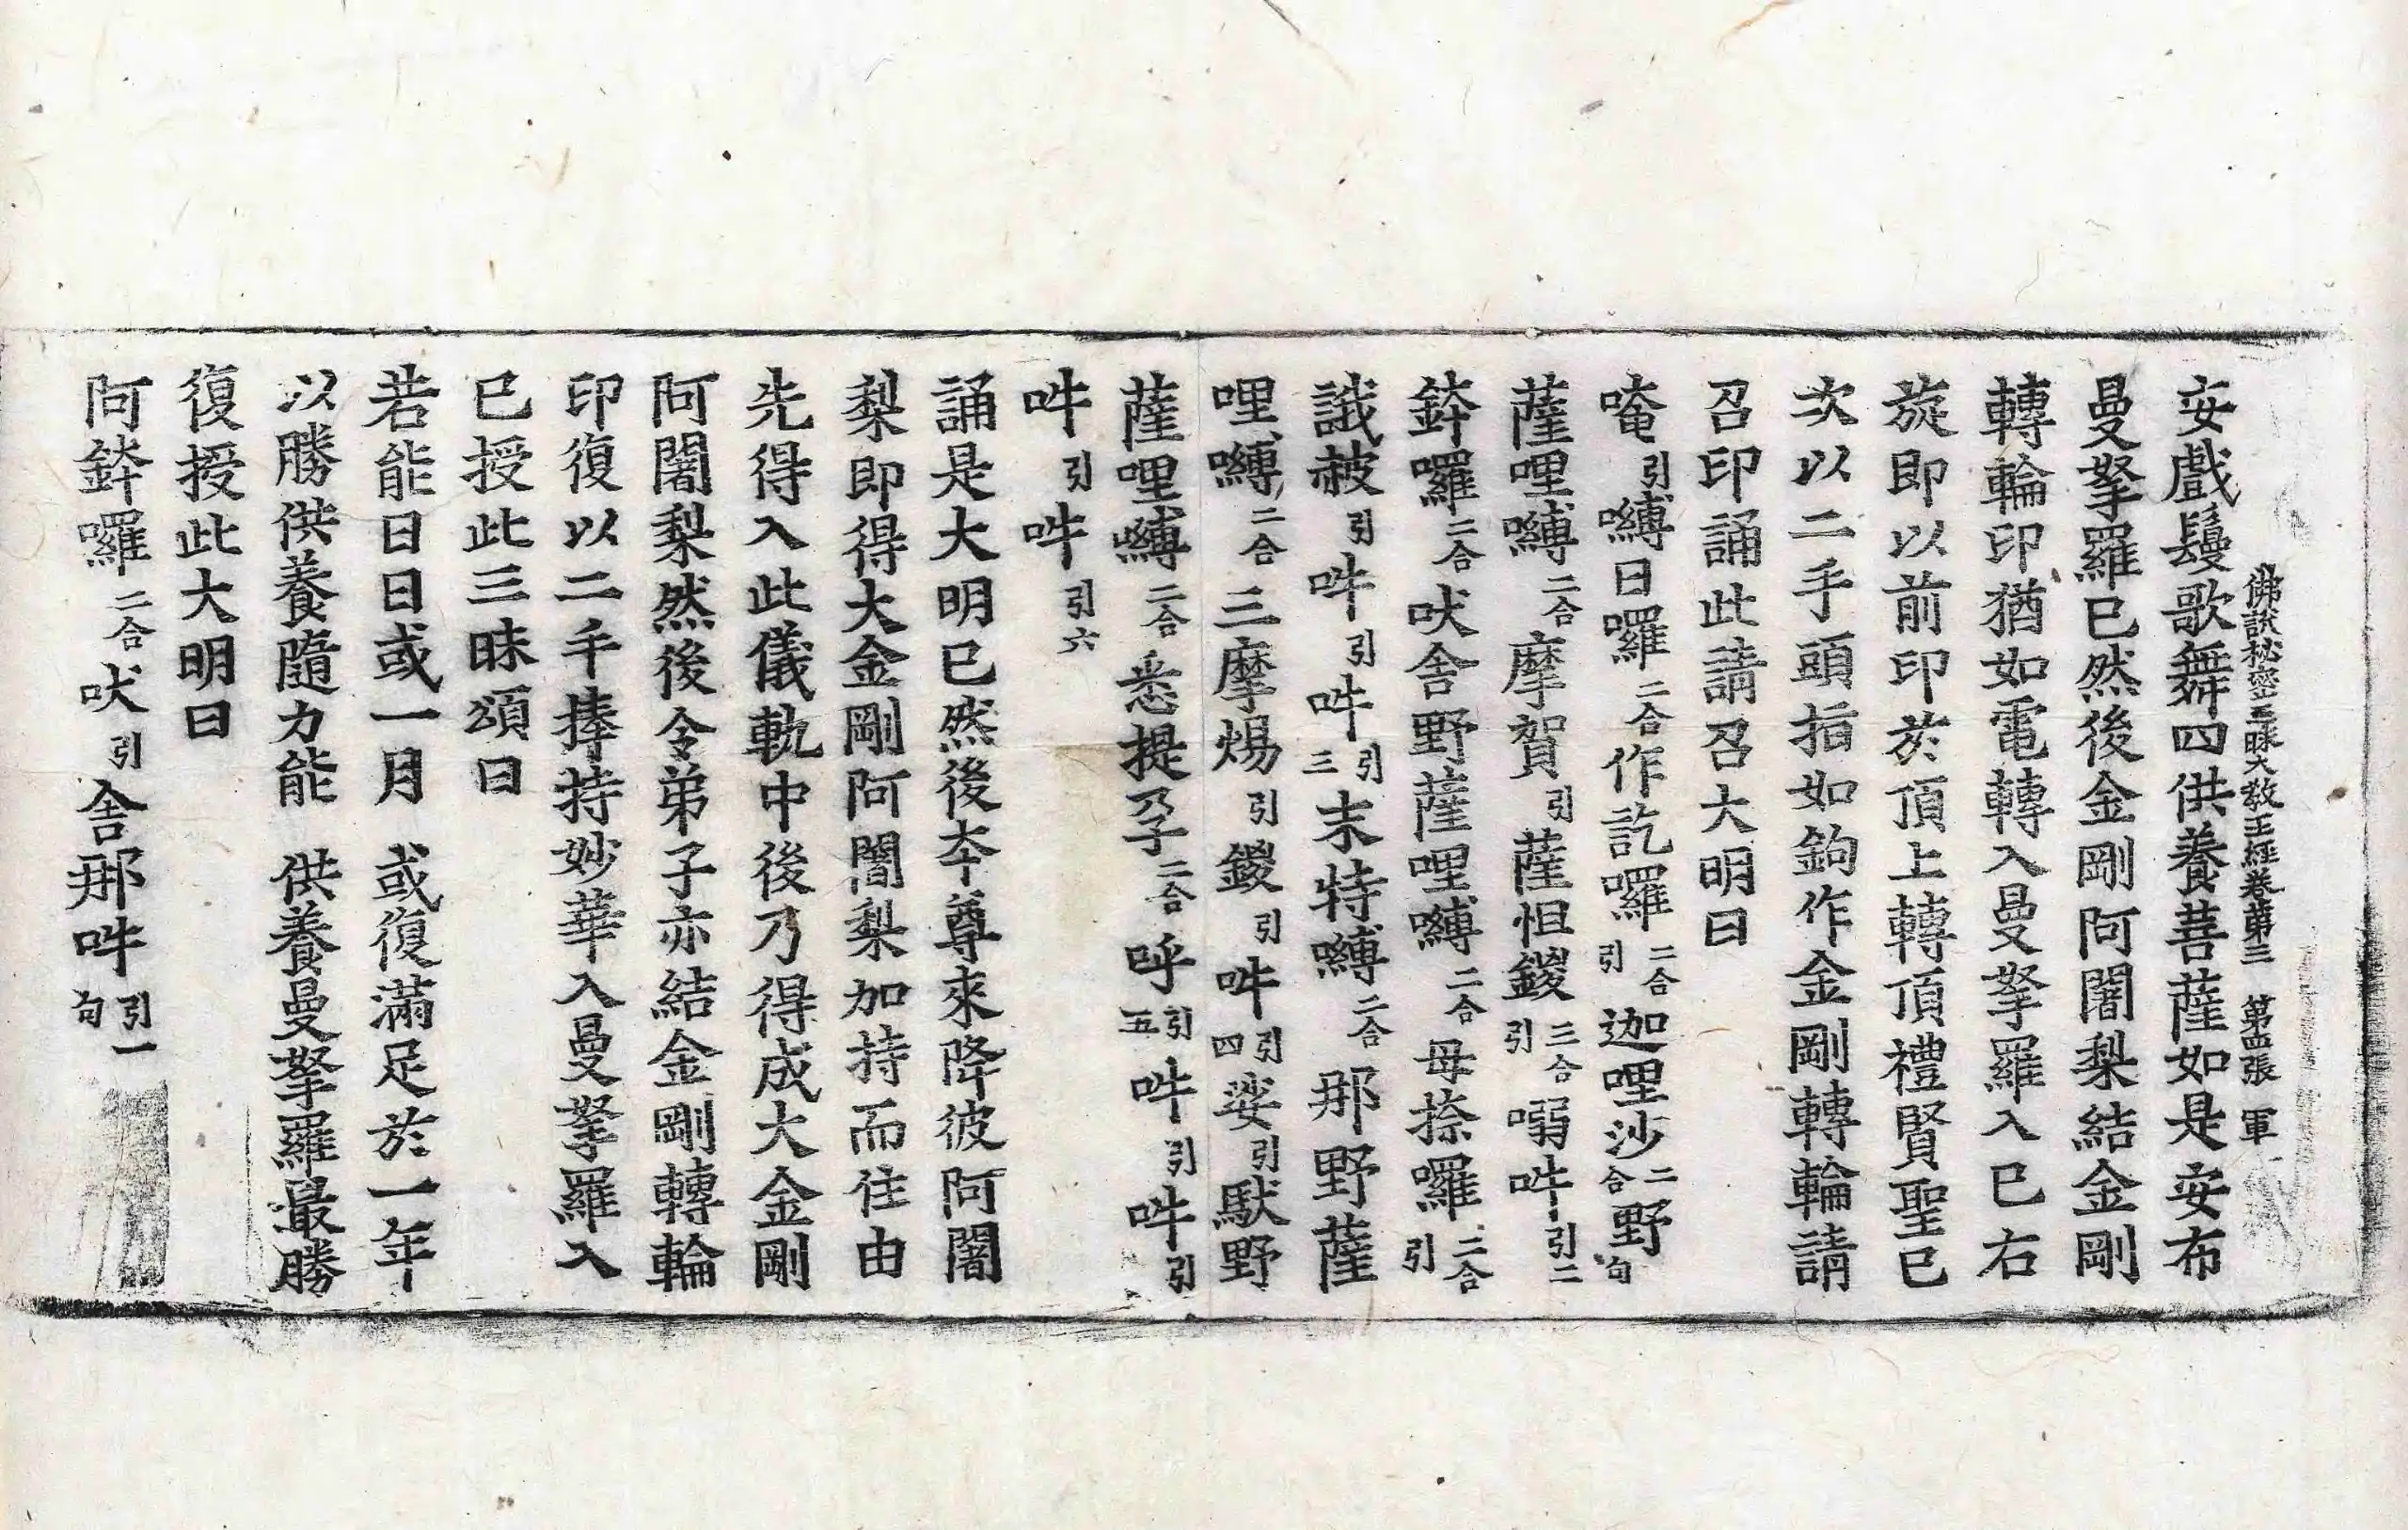 佛說秘密三昧大教王經卷第三 第四張 軍
安戲鬘歌舞四供養菩薩如是安布
曼拏羅已然後金剛阿闍梨結金剛
轉輪印猶如電轉入曼拏羅入已右
旋即以前印於頂上轉頂禮賢聖已
次以二手頭指如鉤作金剛轉輪請
召印誦此請召大明曰
唵引嚩日囉二合作訖囉二合引迦哩沙二合野句
薩哩嚩二合摩賀引薩怛鑁三合引嗢吽引二
鉢囉二合吠舍野薩哩嚩二合母捺囉二合引
誐赧引吽引吽引三末特嚩二合那野薩
哩嚩二合三摩煬引鑁引吽引四娑引馱野
薩哩嚩二合悉提孕二合呼引五吽引吽引
吽引吽引六
誦是大明已然後本尊來降彼阿闍
梨即得大金剛阿闍梨加持而住由
先得入此儀軌中後乃得成大金剛
阿闍梨然後令弟子亦結金剛轉輪
印復以二手捧持妙華入曼拏羅入
已授此三昧頌曰
若能日日或一月 或復滿足於一年
以勝供養隨力能 供養曼拏羅最勝
復授此大明曰
阿鉢囉二合吠引舍那吽引一句